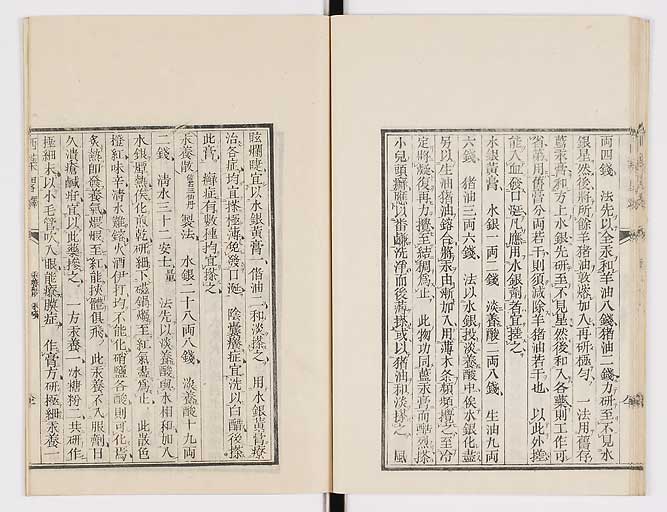 兩四錢　法先以全汞和羊油八錢猪油二錢力研至不見水
銀星然後將所餘羊猪油敦溶加入再研極勻　一法用舊存
藍汞膏和方上水銀先研至不見星然後和入各藥則工作可
省第用舊膏分兩若干則須減除羊猪油若干也　以此外搽
能入血發口涎凡應用水銀劑者宜搽之
水銀黃膏　水銀一兩二錢　淡養酸二兩八錢　生油九兩
六錢　猪油三兩六錢　法以水銀投淡養酸中俟水銀化盡
另以生油猪油鎔合將汞由漸加入用薄木條頻頻攪之至冷
定將凝復再力攪至結稠為止　此物功同藍汞膏而酷烈搽
小兒頭癬應以番鹼洗淨而後薄搽或以猪油和淡搽之　風
眩爛睫宜以水銀黃膏一脂油二和淡搽之　用水銀黃膏療
治各症均宜搽極薄免發口涎　陰囊癢症宜洗以白醋後搽
此膏　癬症有數種均宜搽之
汞養散　製法　水銀二十八兩八錢　淡養酸十九兩
二錢　淸水三十二安士量　法先以淡養酸與水相和加入
水銀燉熱俟化煮乾研細下磁鍋爌至紅氣盡為止　此散色
橙紅味辛淸水難鎔火酒伊打均不能化硝鹽各酸則可化焉
炙熱即發養氣煅煆至紅能挾體俱飛　此汞養不入服劑日
久潰瘡鹹疳宜以此藥搽之　一方汞養一冰糖粉二共研作
極細末以小毛管吹入眼能療矇症　作膏方研極細汞養一